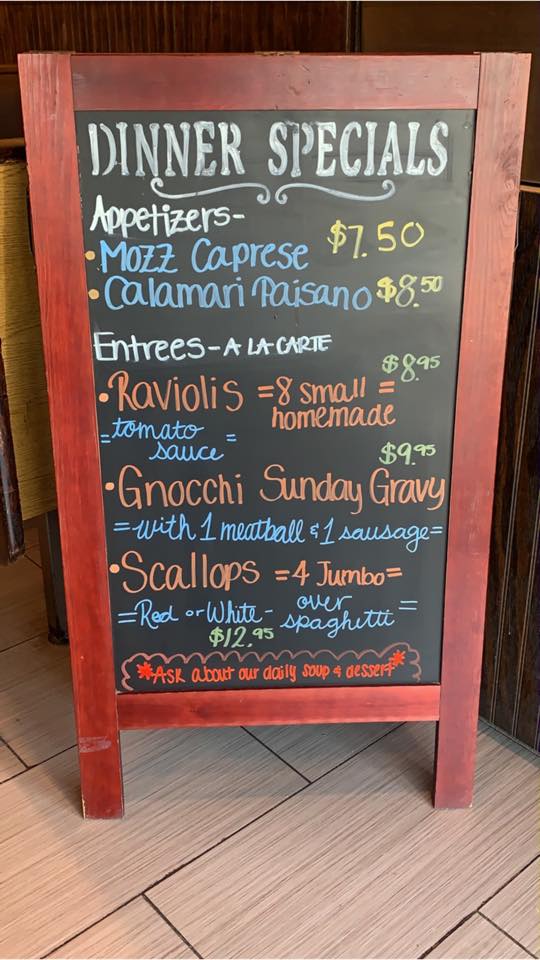 DINNER SPECIALS
Appetizers-
• Mozz Caprese $7.50
• Calamari Paisano $8.50
Entrees - A LA CARTE
$8.95
• Raviolis =8 small =
homemade
=tomato
sauce =
$9.95
• Gnocchi Sunday Gravy
=with 1 meatball & 1 sausage=
• Scallops =4 Jumbo=
=Red or White - over
spaghetti =
$12.95
*Ask about our daily soup & dessert*